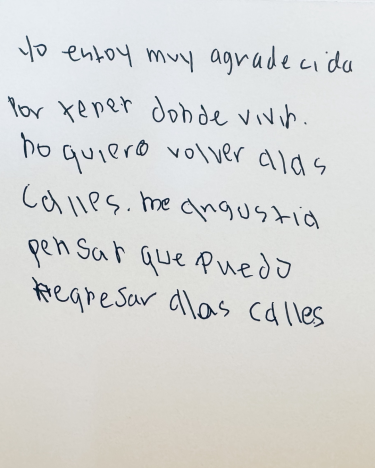 Yo estoy muy agradecida
Por tener donde vivir.
no quiero volver alas
Calles. me angustia
pensar que Puedo
regresar alas calles